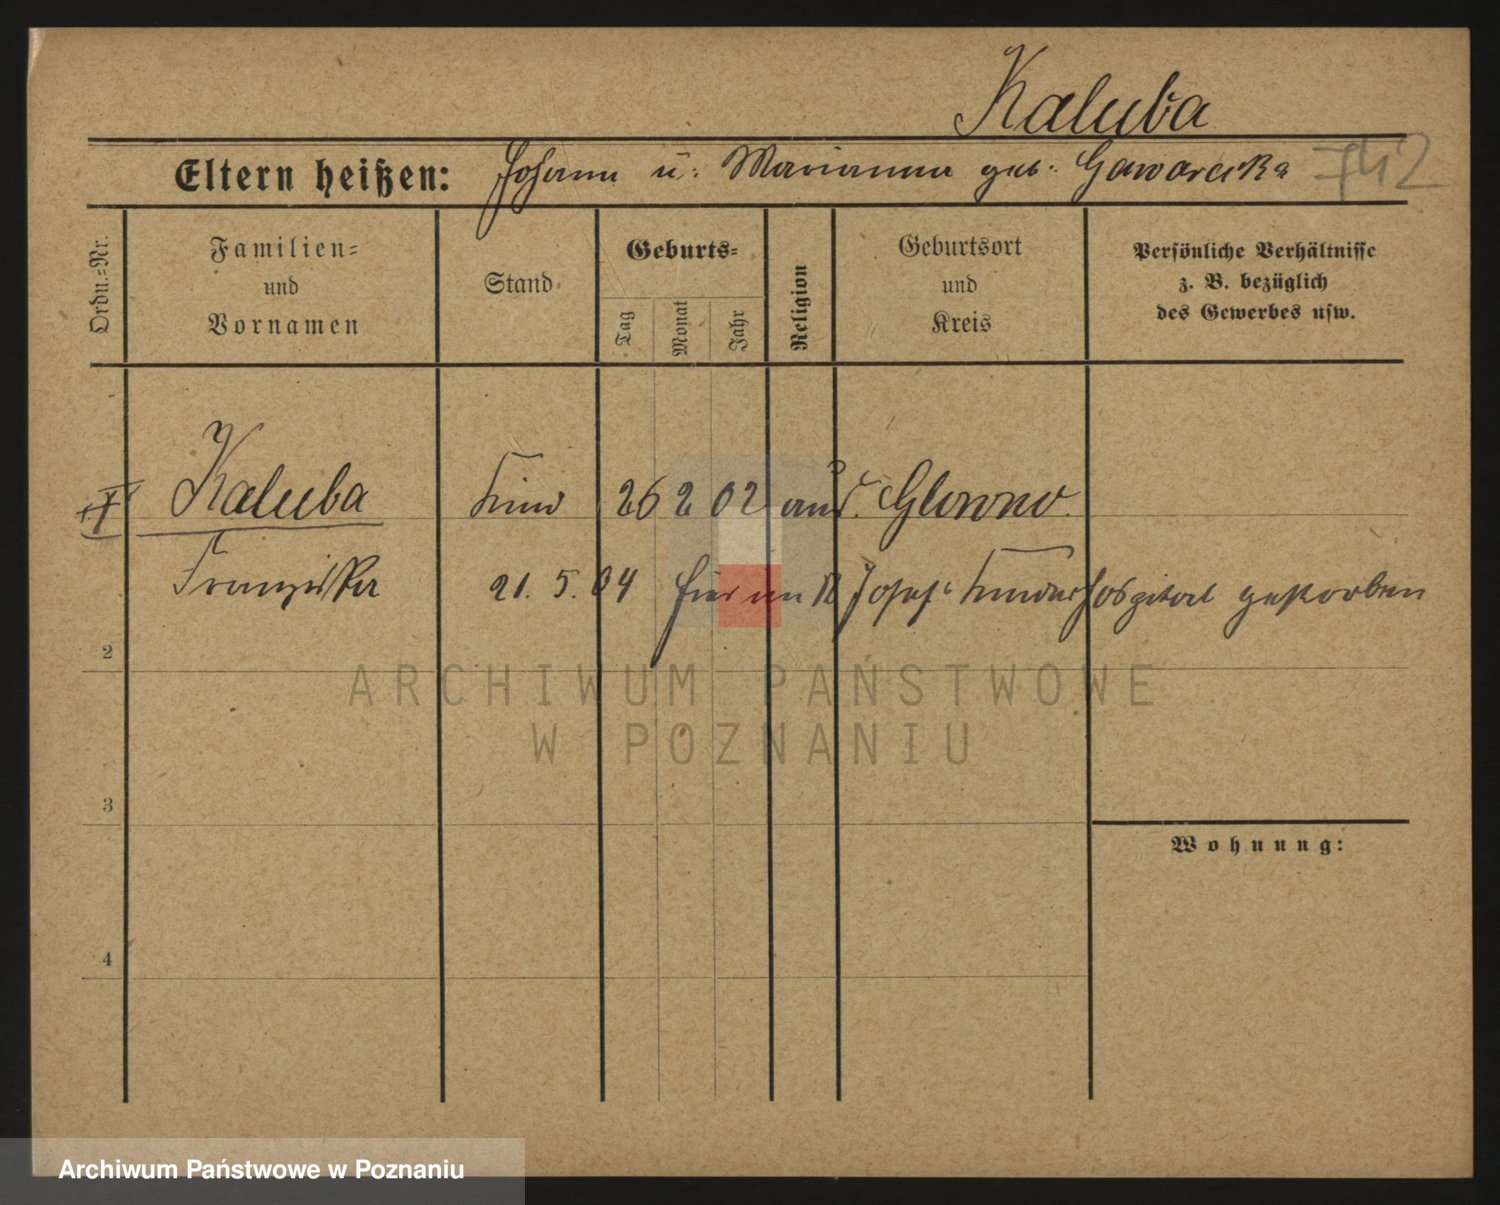 Kaluba
Eltern heißen: Johann u: Marianna geb. Gawarecka 742
Ordn.=Nr.
Familien=
und
Vornamen
Stand
Geburts=
Tag
Monat
Jahr
Religion
Geburtsort
und
Kreis
Persönliche Verhältnisse
z. B. bezüglich
des Gewerbes usw.
Kaluba Kind 26 2 02 Glowno.
Franziska 21. 5. 04 hier im Josef Kinderhospital gestorben
2
3
4
Wohnung:
ARCHIWUM PAŃSTWOWE
W POZNANIU
Archiwum Państwowe w Poznaniu